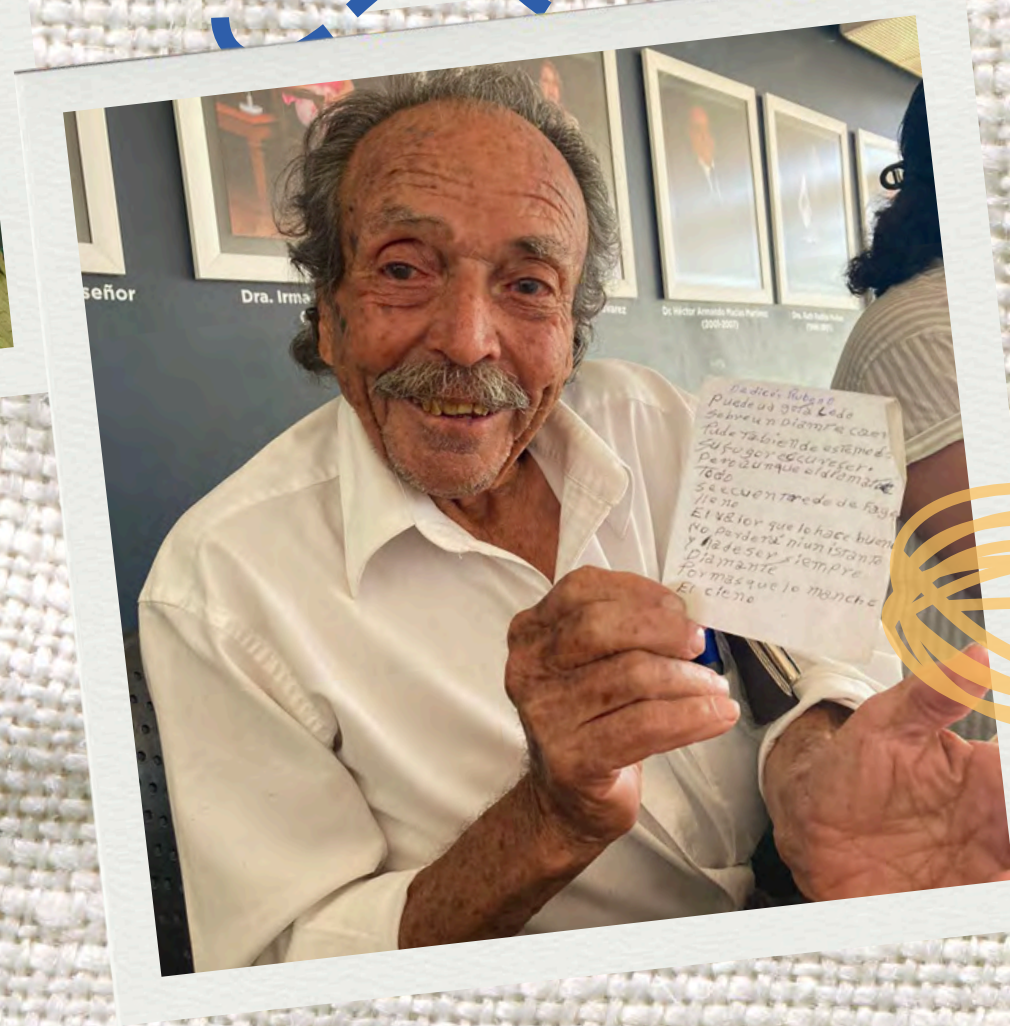 señor
Dra. Irma
Dr. Héctor Armando Macías Martínez
(2001-2007)
Puede una gota Ledo
sobre un Diamante caer
su fugor escurecer.
Pero aunque el diamante
Todo
se ecuentre de de fago
lleno
El valor que lo hace bueno
No perderá ni un istante
y ha de ser siempre
Diamante
por mas que lo manche
El cieno